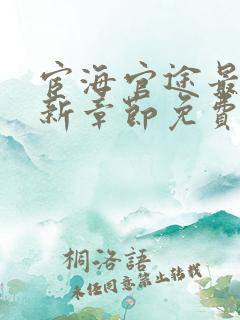 宦海官途最
新章節免費
桐洛語
未经同意禁止转载